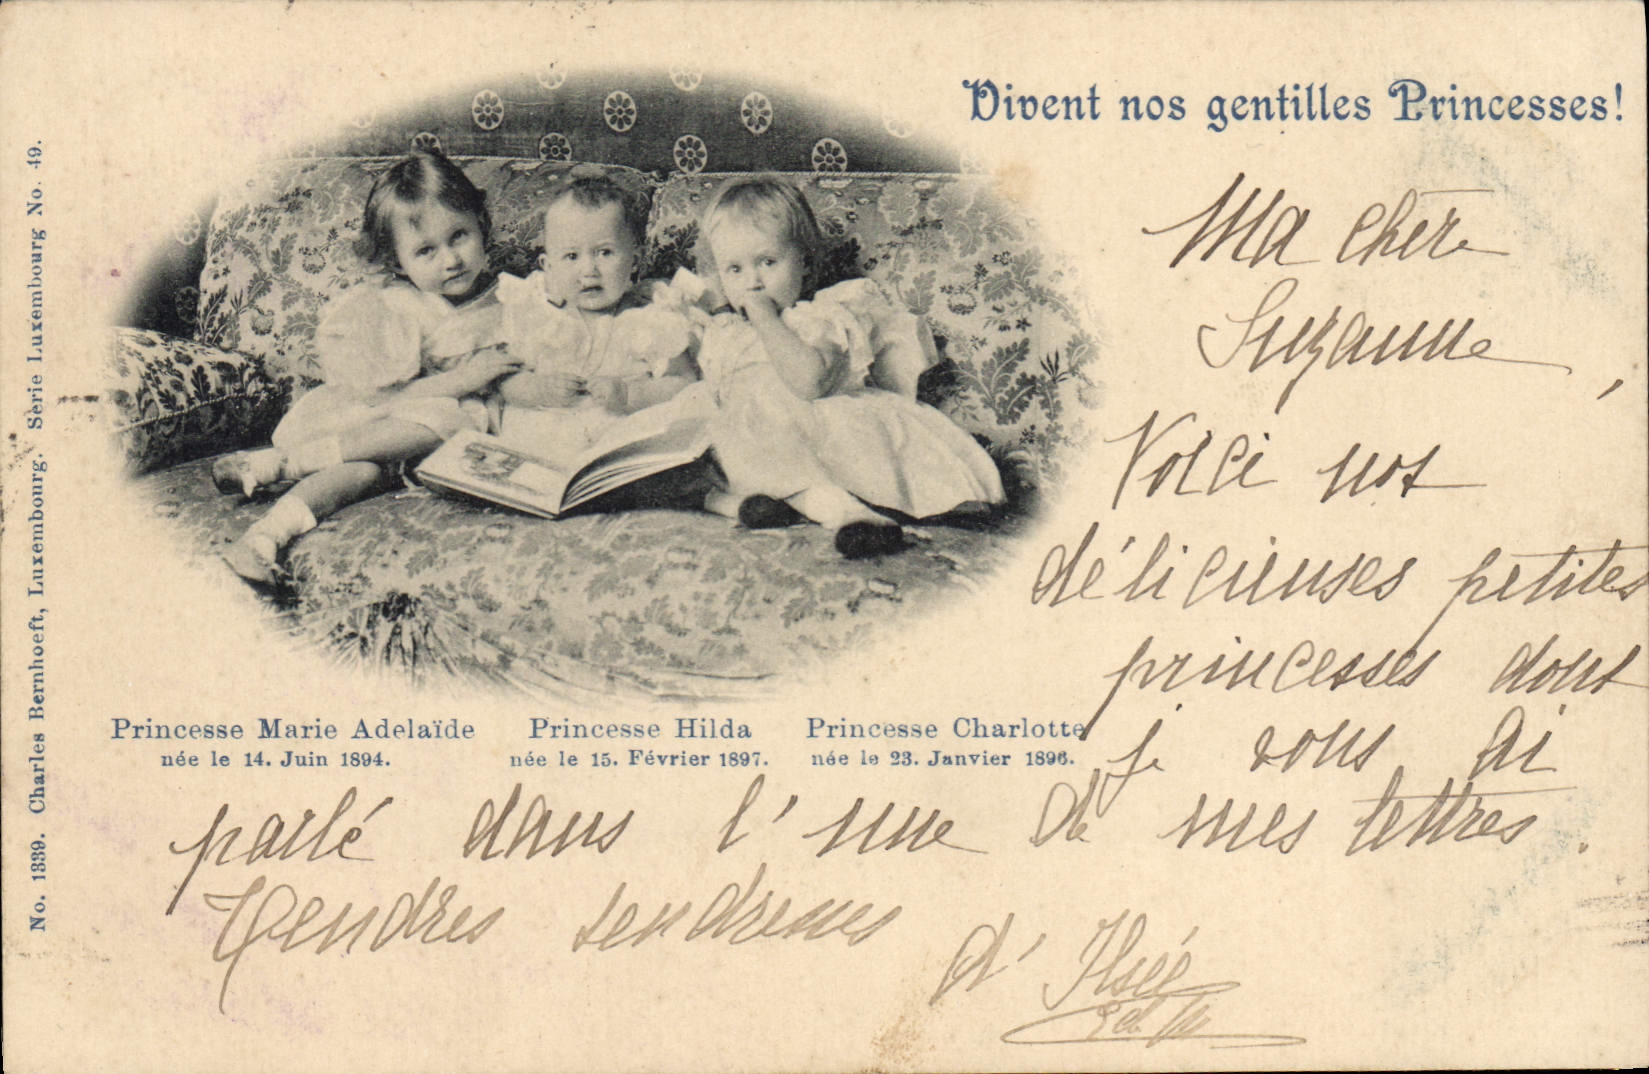 Vivent nos gentilles Princesses!
Ma cher
Suzanne,
Voici nos
délicieuses petites
princesses dont
je vous ai
parlé dans l'une de mes lettres.
Tendres tendresses
d'
Princesse Marie Adelaïde
née le 14. Juin 1894.
Princesse Hilda
née le 15. Février 1897.
Princesse Charlotte
née le 23. Janvier 1896.
No. 1339. Charles Bernhoeft, Luxembourg. Serie Luxembourg No. 49.